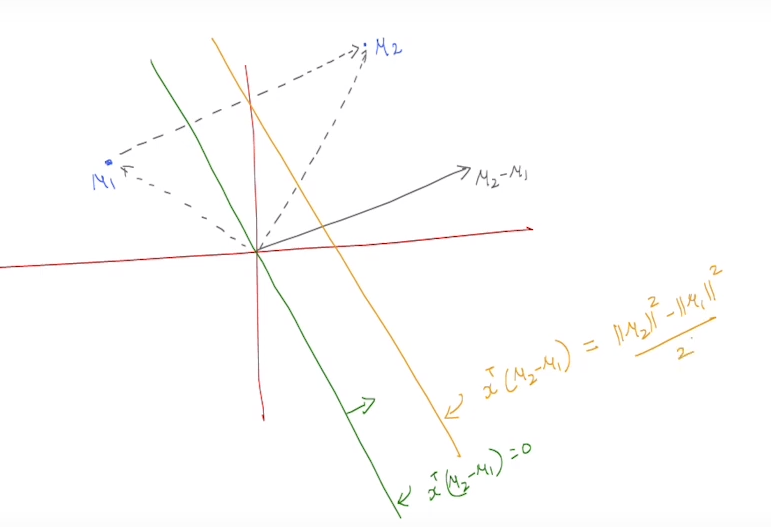 μ2
μ1
μ2-μ1
xᵀ(μ2-μ1) = ||μ2||² - ||μ1||² / 2
xᵀ(μ2-μ1) = 0